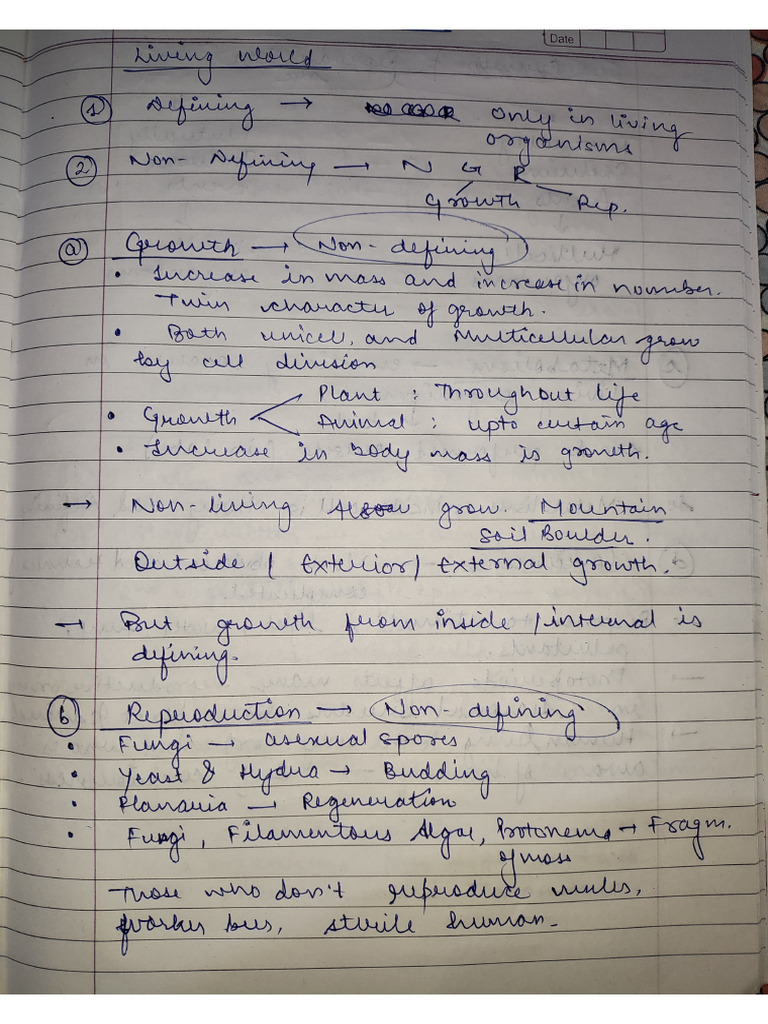 Date
Living World
① Defining → only in living
organisms
② Non-Defining → N G R
Growth Rep.
ⓐ Growth → Non-defining
• Increase in mass and increase in nomumber.
Twin character of growth.
• Both unicel, and Multicellular grow
by cell division
Plant : Throughout life
• Growth
Animal : upto certain age
• Increase in body mass is growth.
→ Non-living Also grow. Mountain
Soil Boulder.
Outside / Exterior / External growth.
→ But growth from inside / internal is
defining.
ⓑ Reproduction → Non-defining
• Fungi → asexual spores
• Yeast & Hydra → Budding
• Planaria → Regeneration
• Fungi, Filamentous Algae, Protonema → Fragm.
of moss
Those who don't reproduce mules,
Worker bees, sterile human.